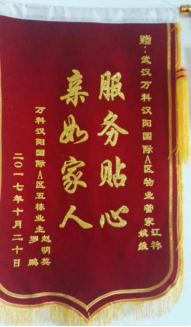 赠：武汉万科汉阳国际A区物业管家
服务贴心
亲如家人
万科汉阳国际A区五栋业主
赵明英
罗鹏
二〇一七年十月二十日